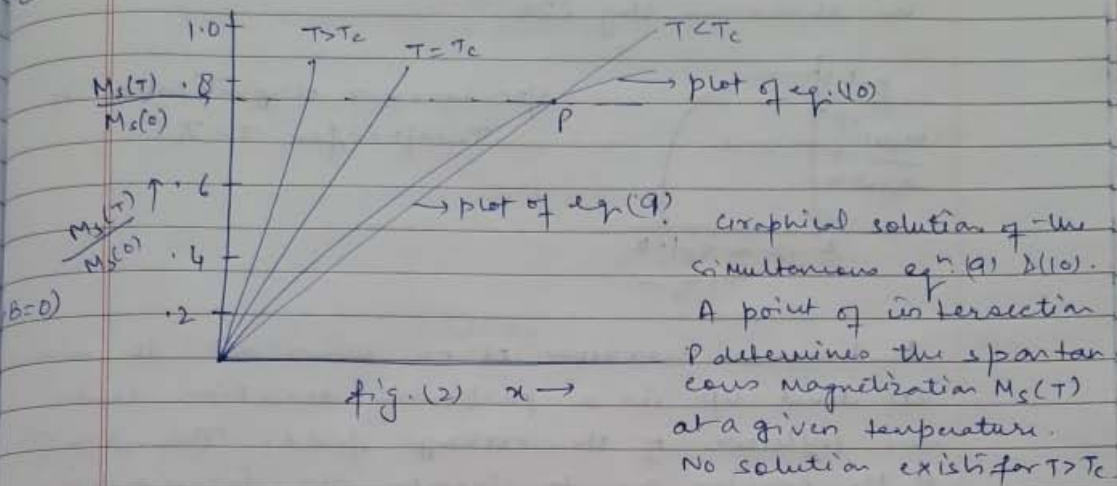 1.0
T>Tc
T=Tc
T<Tc
Ms(T)
Ms(0)
.8
→ plot of eq.(10)
P
.6
Ms(T) ↑
Ms(0)
→ plot of eqn(9)
.4
B=0)
.2
Graphical solution of the
simultaneous eqn. (9) &(10).
A point of intersection
P determines the spontan
eous Magnetization Ms(T)
at a given temperature.
No solution exists for T>Tc
fig.(2) x →